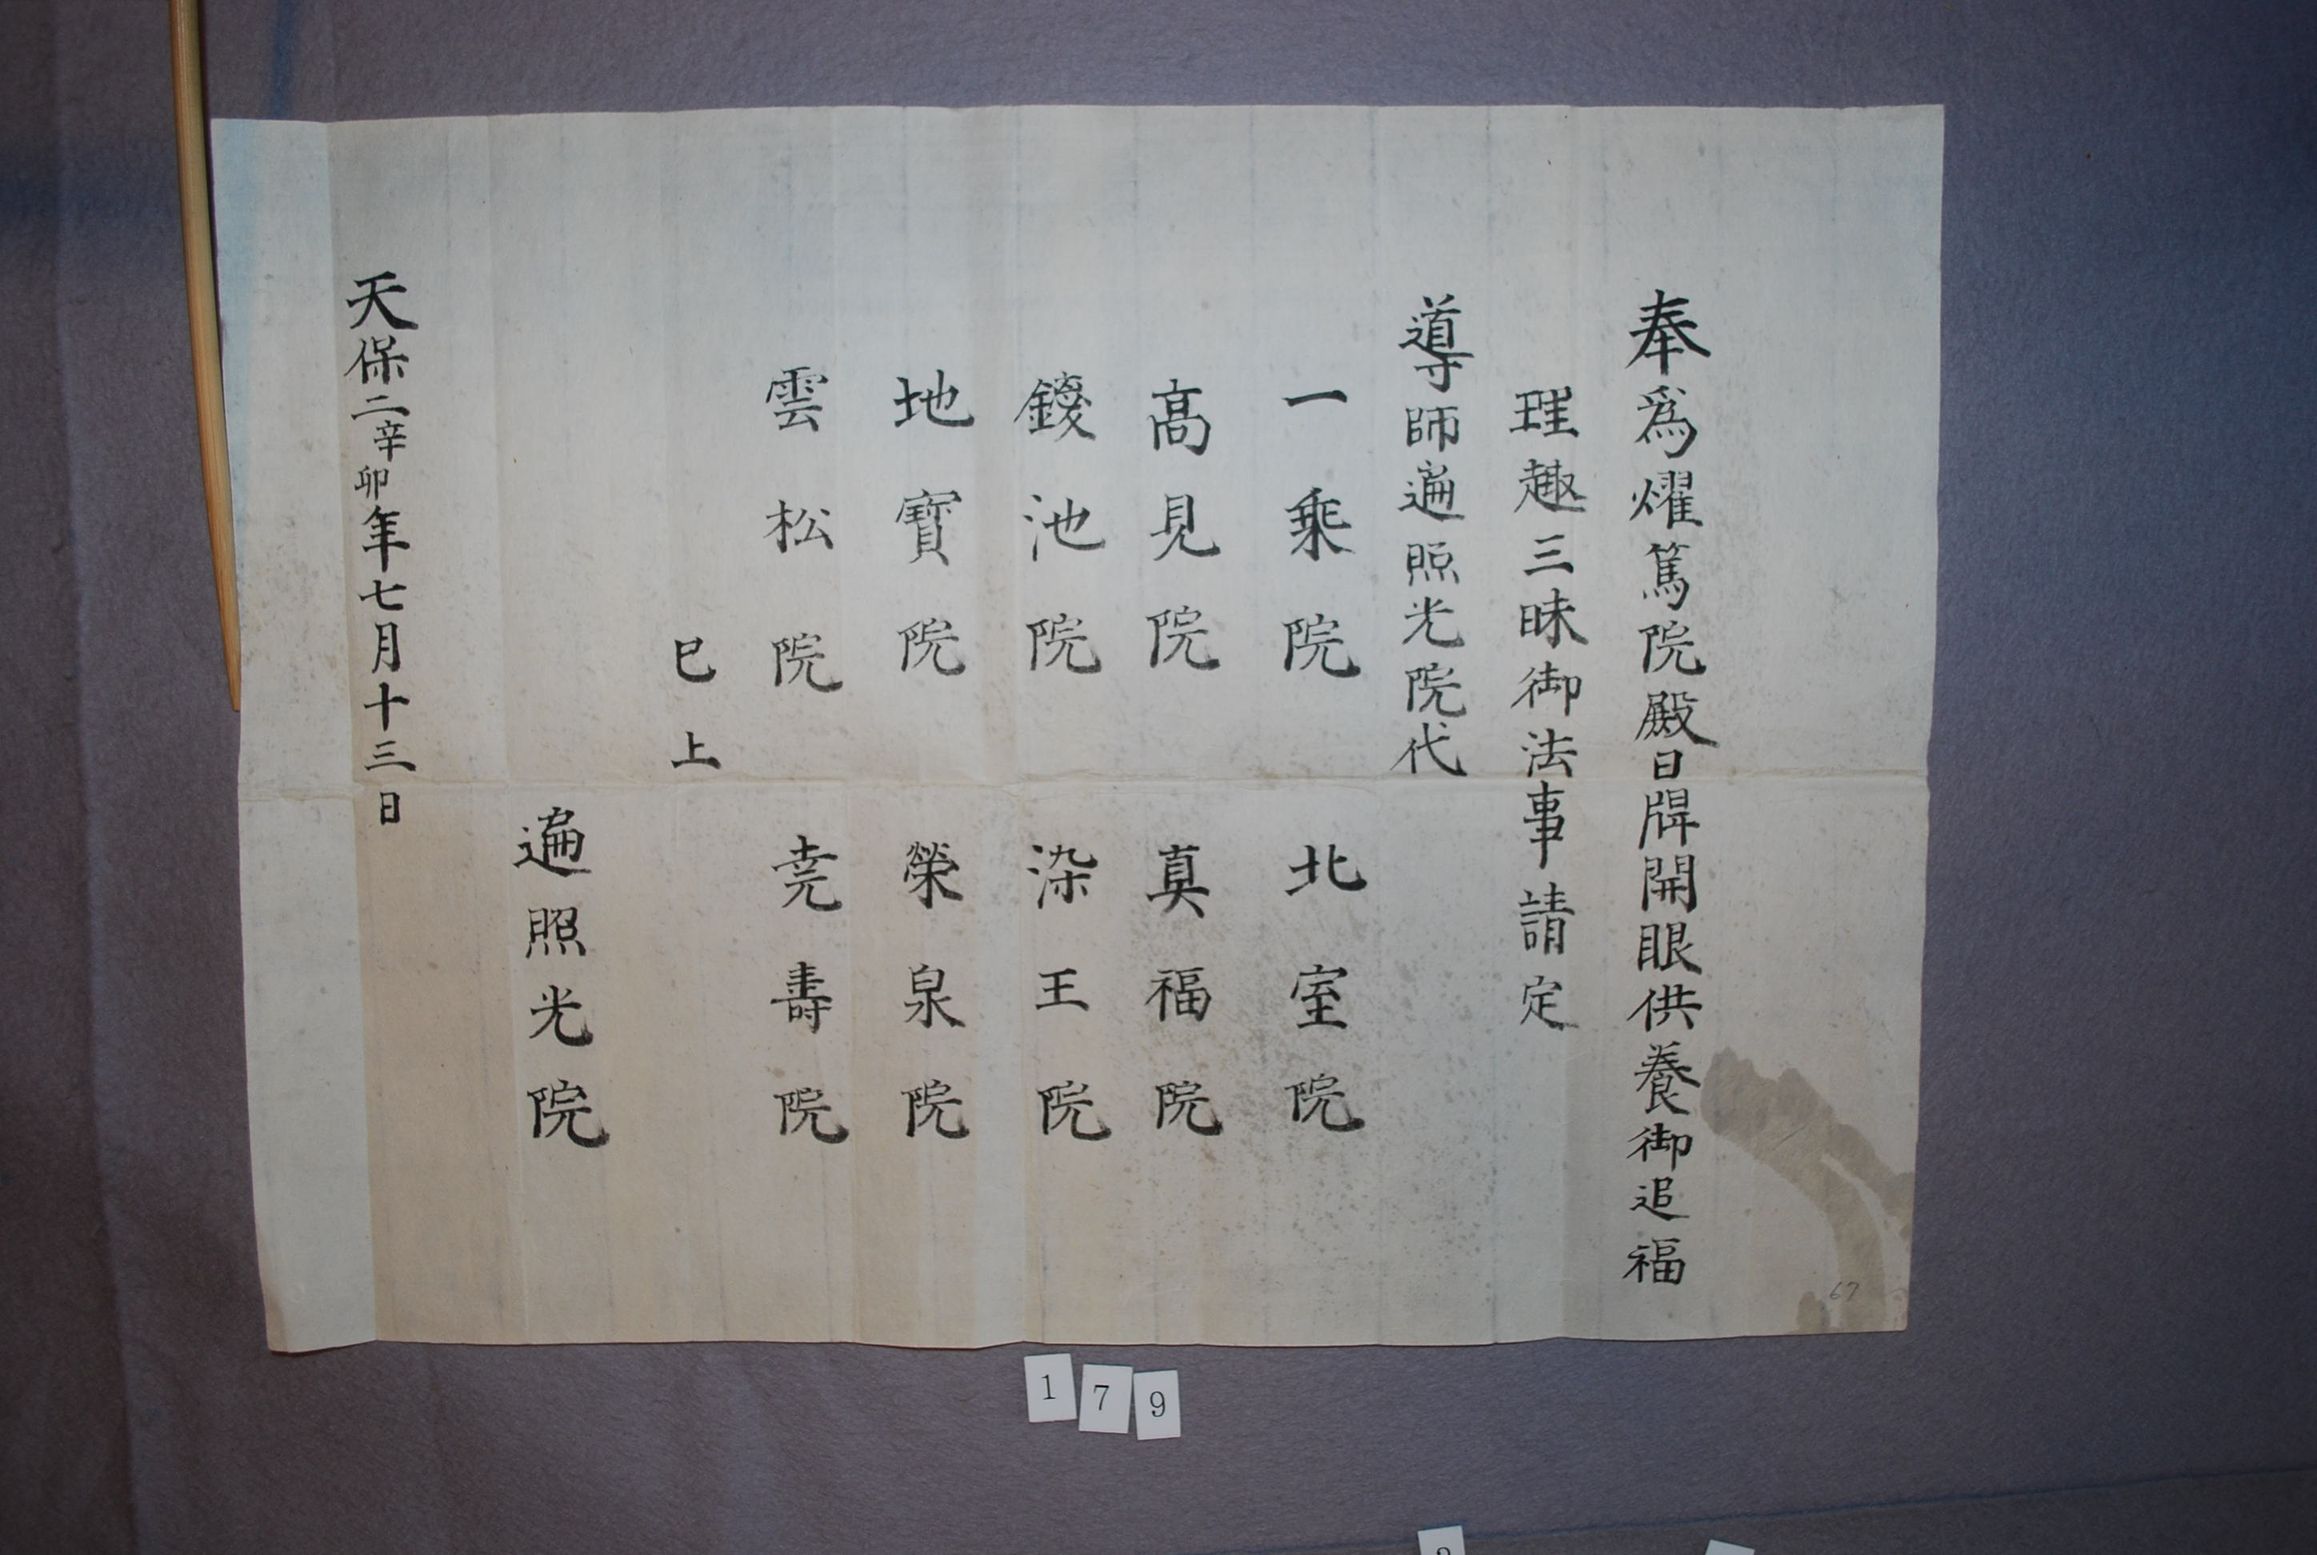 奉爲燿篤院殿日牌開眼供養御追福
理趣三昧御法事請定
導師遍照光院代
一乗院　北室院
髙見院　真福院
鑁池院　染王院
地寳院　榮泉院
雲松院　尭壽院
巳上
遍照光院
天保二辛卯年七月十三日
67
1 7 9